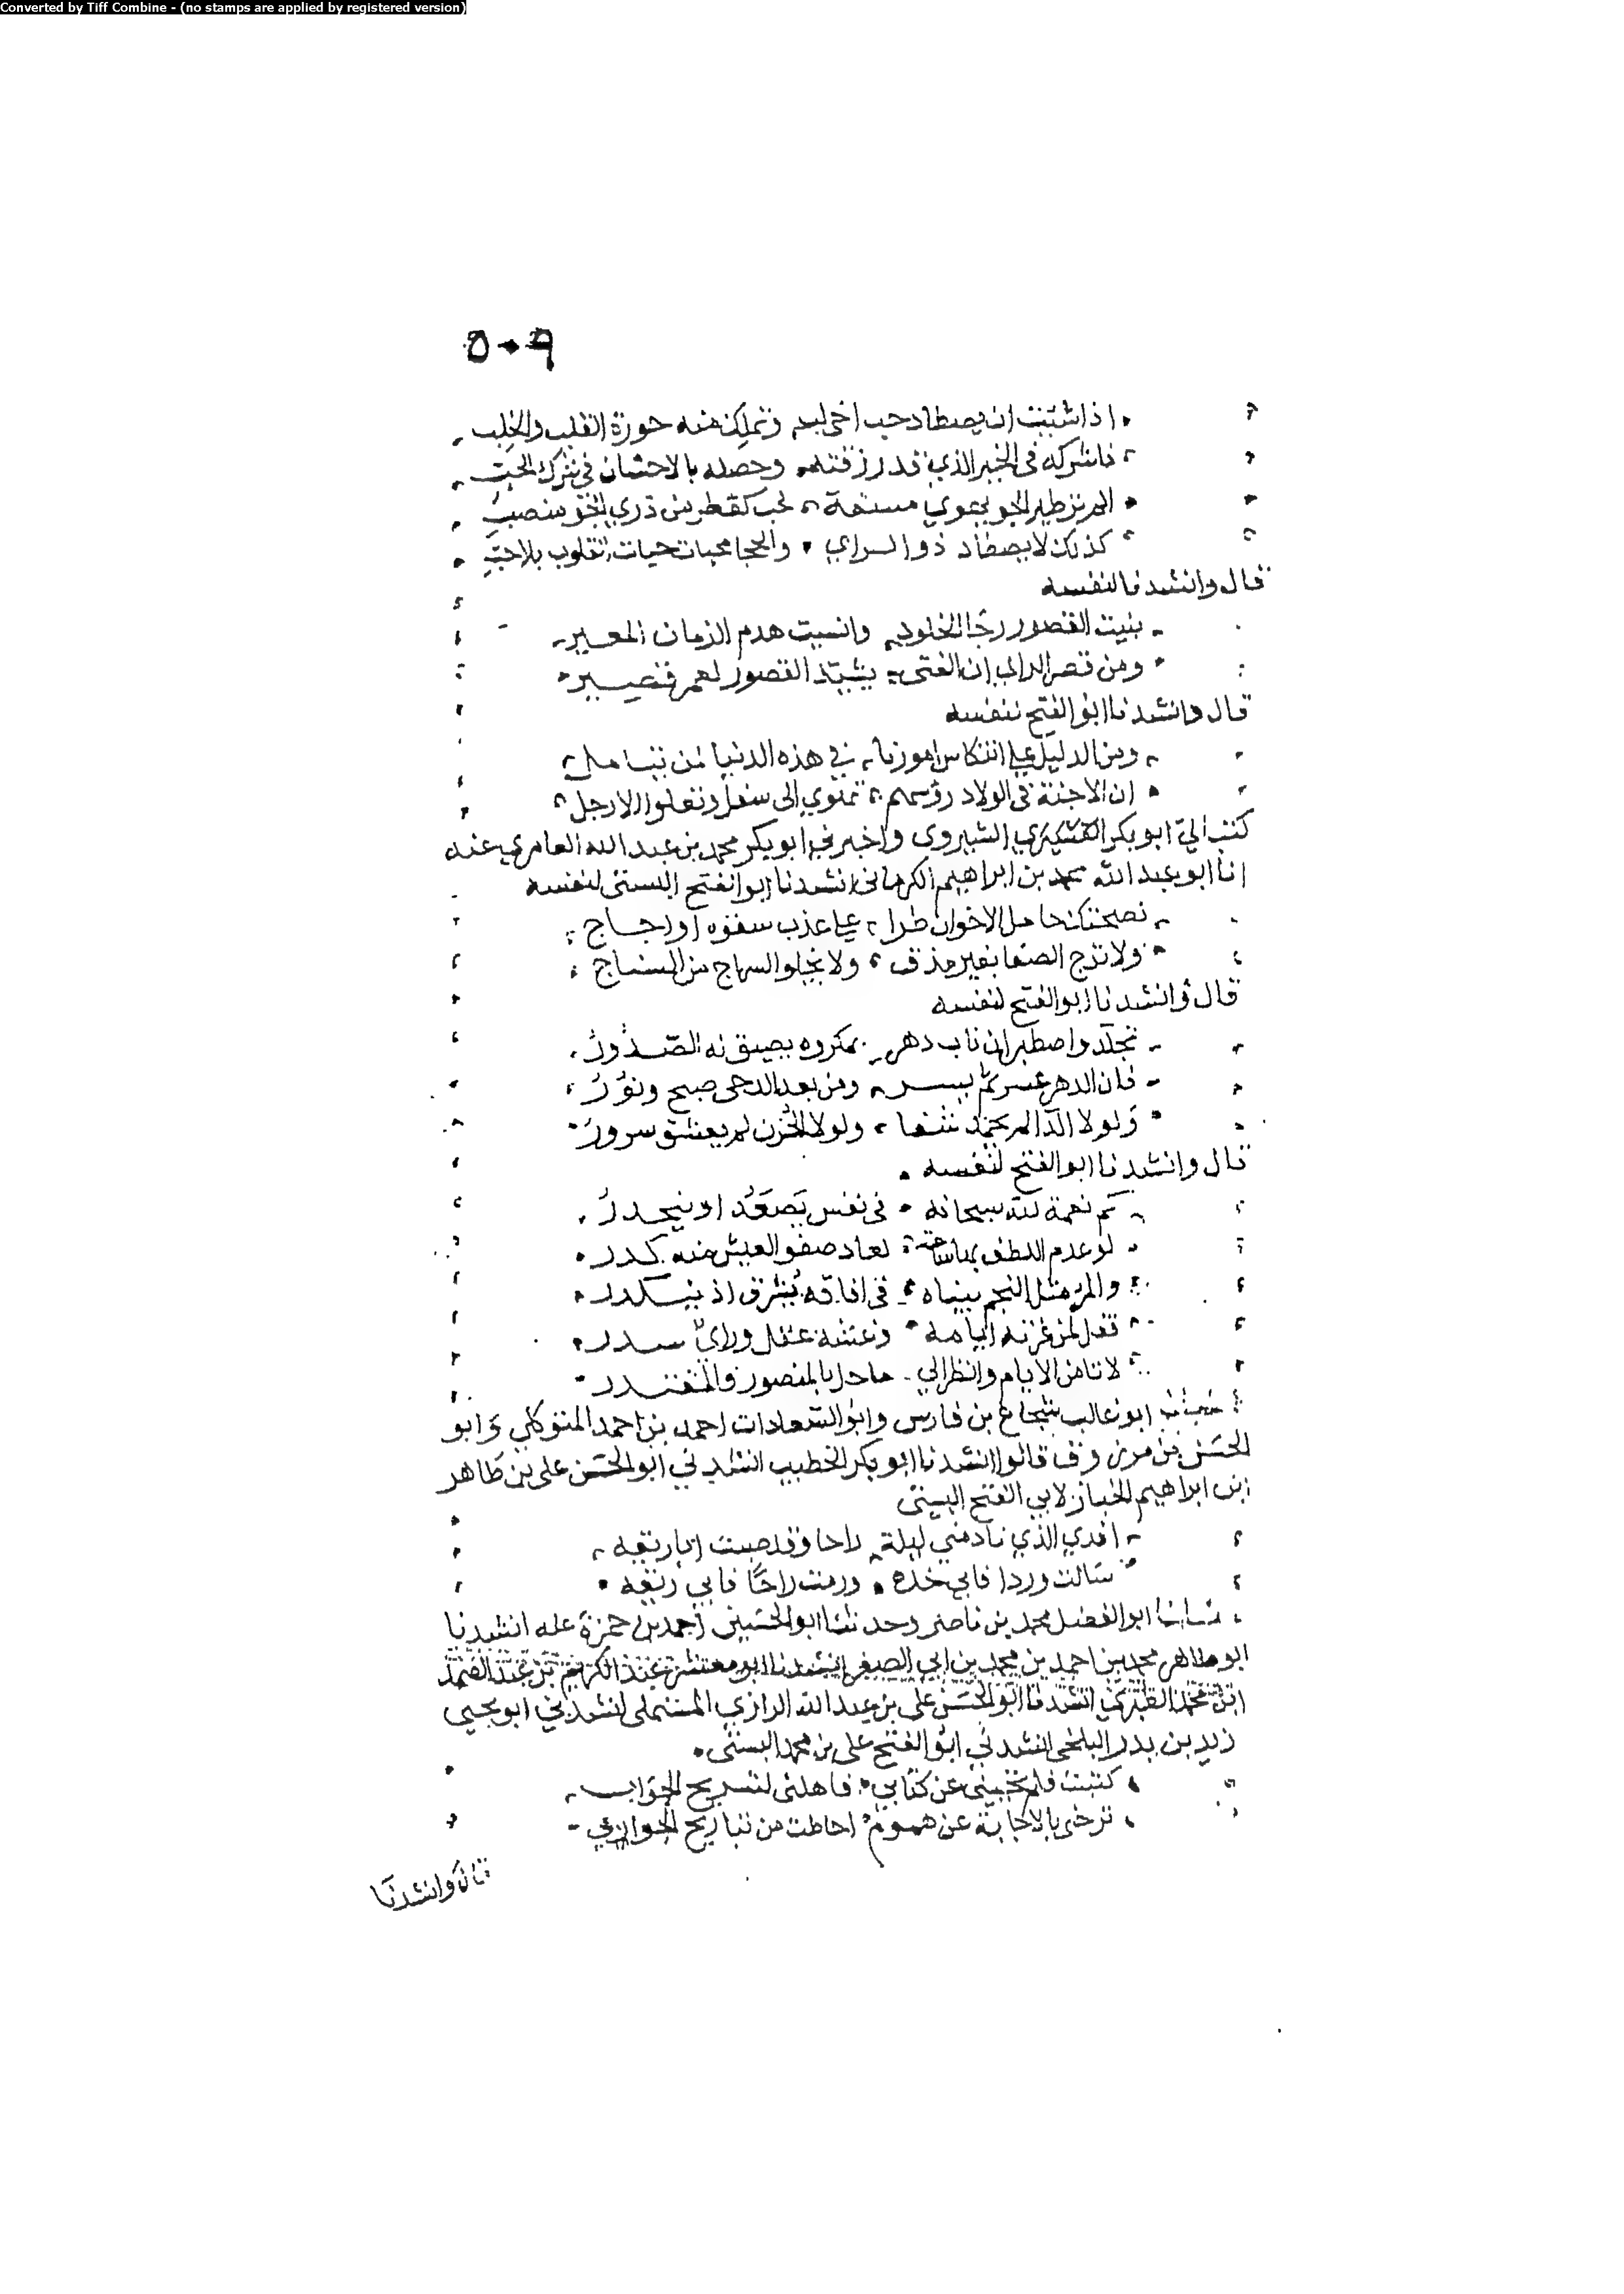 Converted by Tiff Combine - (no stamps are applied by registered version)
٥٠٩
اذا شئت ان يصطاد حب اخي لب وتملك منه حوزة القلب والخلب
فاشركه في الخير الذي قد رزقته وحصله بالاحسان في شرك الحب
الم تر طير الجو يهوي مسفة لحب كقطر من ذري الجو منصب
كذلك لا يصطاد ذو الراي والحجا محبات حيات القلوب بلا حب
قال وانشدنا لنفسه
بنيت القصور رجا الخلود وانسيت هدم الزمان المعير
ومن قصر الراي ان الفتى يشيد القصور لعمر قصير
قال وانشدنا ابو الفتح لنفسه
ومن الدليل على انتكاس امورنا في هذه الدنيا لمن يتامل
ان الاجنة في الولاد رؤسهم تهوي الى سفل وتعلوا الارجل
كتب الي ابو بكر الشيروى واخبرني ابو بكر محمد بن عبد الله العامري عنه
انا ابو عبد الله محمد بن ابراهيم الكرماني انشدنا ابو الفتح البستى لنفسه
نصحتك حامل الاخوان طرا على عذب سقوه او اجاج
ولا ترج الصفا بغير مذق ولا يخلو السراج من السناج
قال وانشدنا ابو الفتح لنفسه
تجلد واصطبر ان ناب دهر بمكروه يضيق له الصدور
فان الدهر عسر ثم يسر ومن بعد الدجى صبح ونور
ولولا الدا لم يحمد شفا ولولا الحزن لم يعشق سرور
قال وانشدنا ابو الفتح لنفسه
كم نعمة لله سبحانه في نفس يصعد او ينحدر
لو عدم اللطف بها ساعة لعاد صفو العيش منه كدر
والمرء مثل النجم بيناه في افاقه يشرق اذ ينكدر
فقل لمن غرته ايامه وعقله عقل وراي سدر
لا تامن الايام وانظر الي ما حل بالمنصور والمقتدر
ابو غالب شجاع بن فارس وابو السعادات احمد بن احمد المتوكلي وابو
الحسن بن مرزوق قالوا انشدنا ابو بكر الخطيب انشدني ابو الحسن على بن طاهر
ابن ابراهيم الخباز لابي الفتح البستى
افدي الذي نادمني ليلة راحا وقد صبت اباريقه
سالت وردا فابي خده ورمت راحا فابي ريقه
ابو الفضل محمد بن ناصر وحدثنا ابو الحسين احمد بن حمزة عنه انشدنا
ابو طاهر محمد بن احمد بن محمد بن ابي الصقر انشدنا ابو معشر عبد الكريم بن عبد الصمد
ابن محمد الطبري انشدنا ابو الحسن على بن عبد الله الرازي المستملى انشدني ابو يحيى
زيد بن بدر البلخى انشدني ابو الفتح على بن محمد البستى
كتبت فلم تجبني عن كتابي فاهلني لتسريح الجواب
ترخى بالاجابة عن هموم احاطت من تباريح الجوا بي
قال وانشدنا